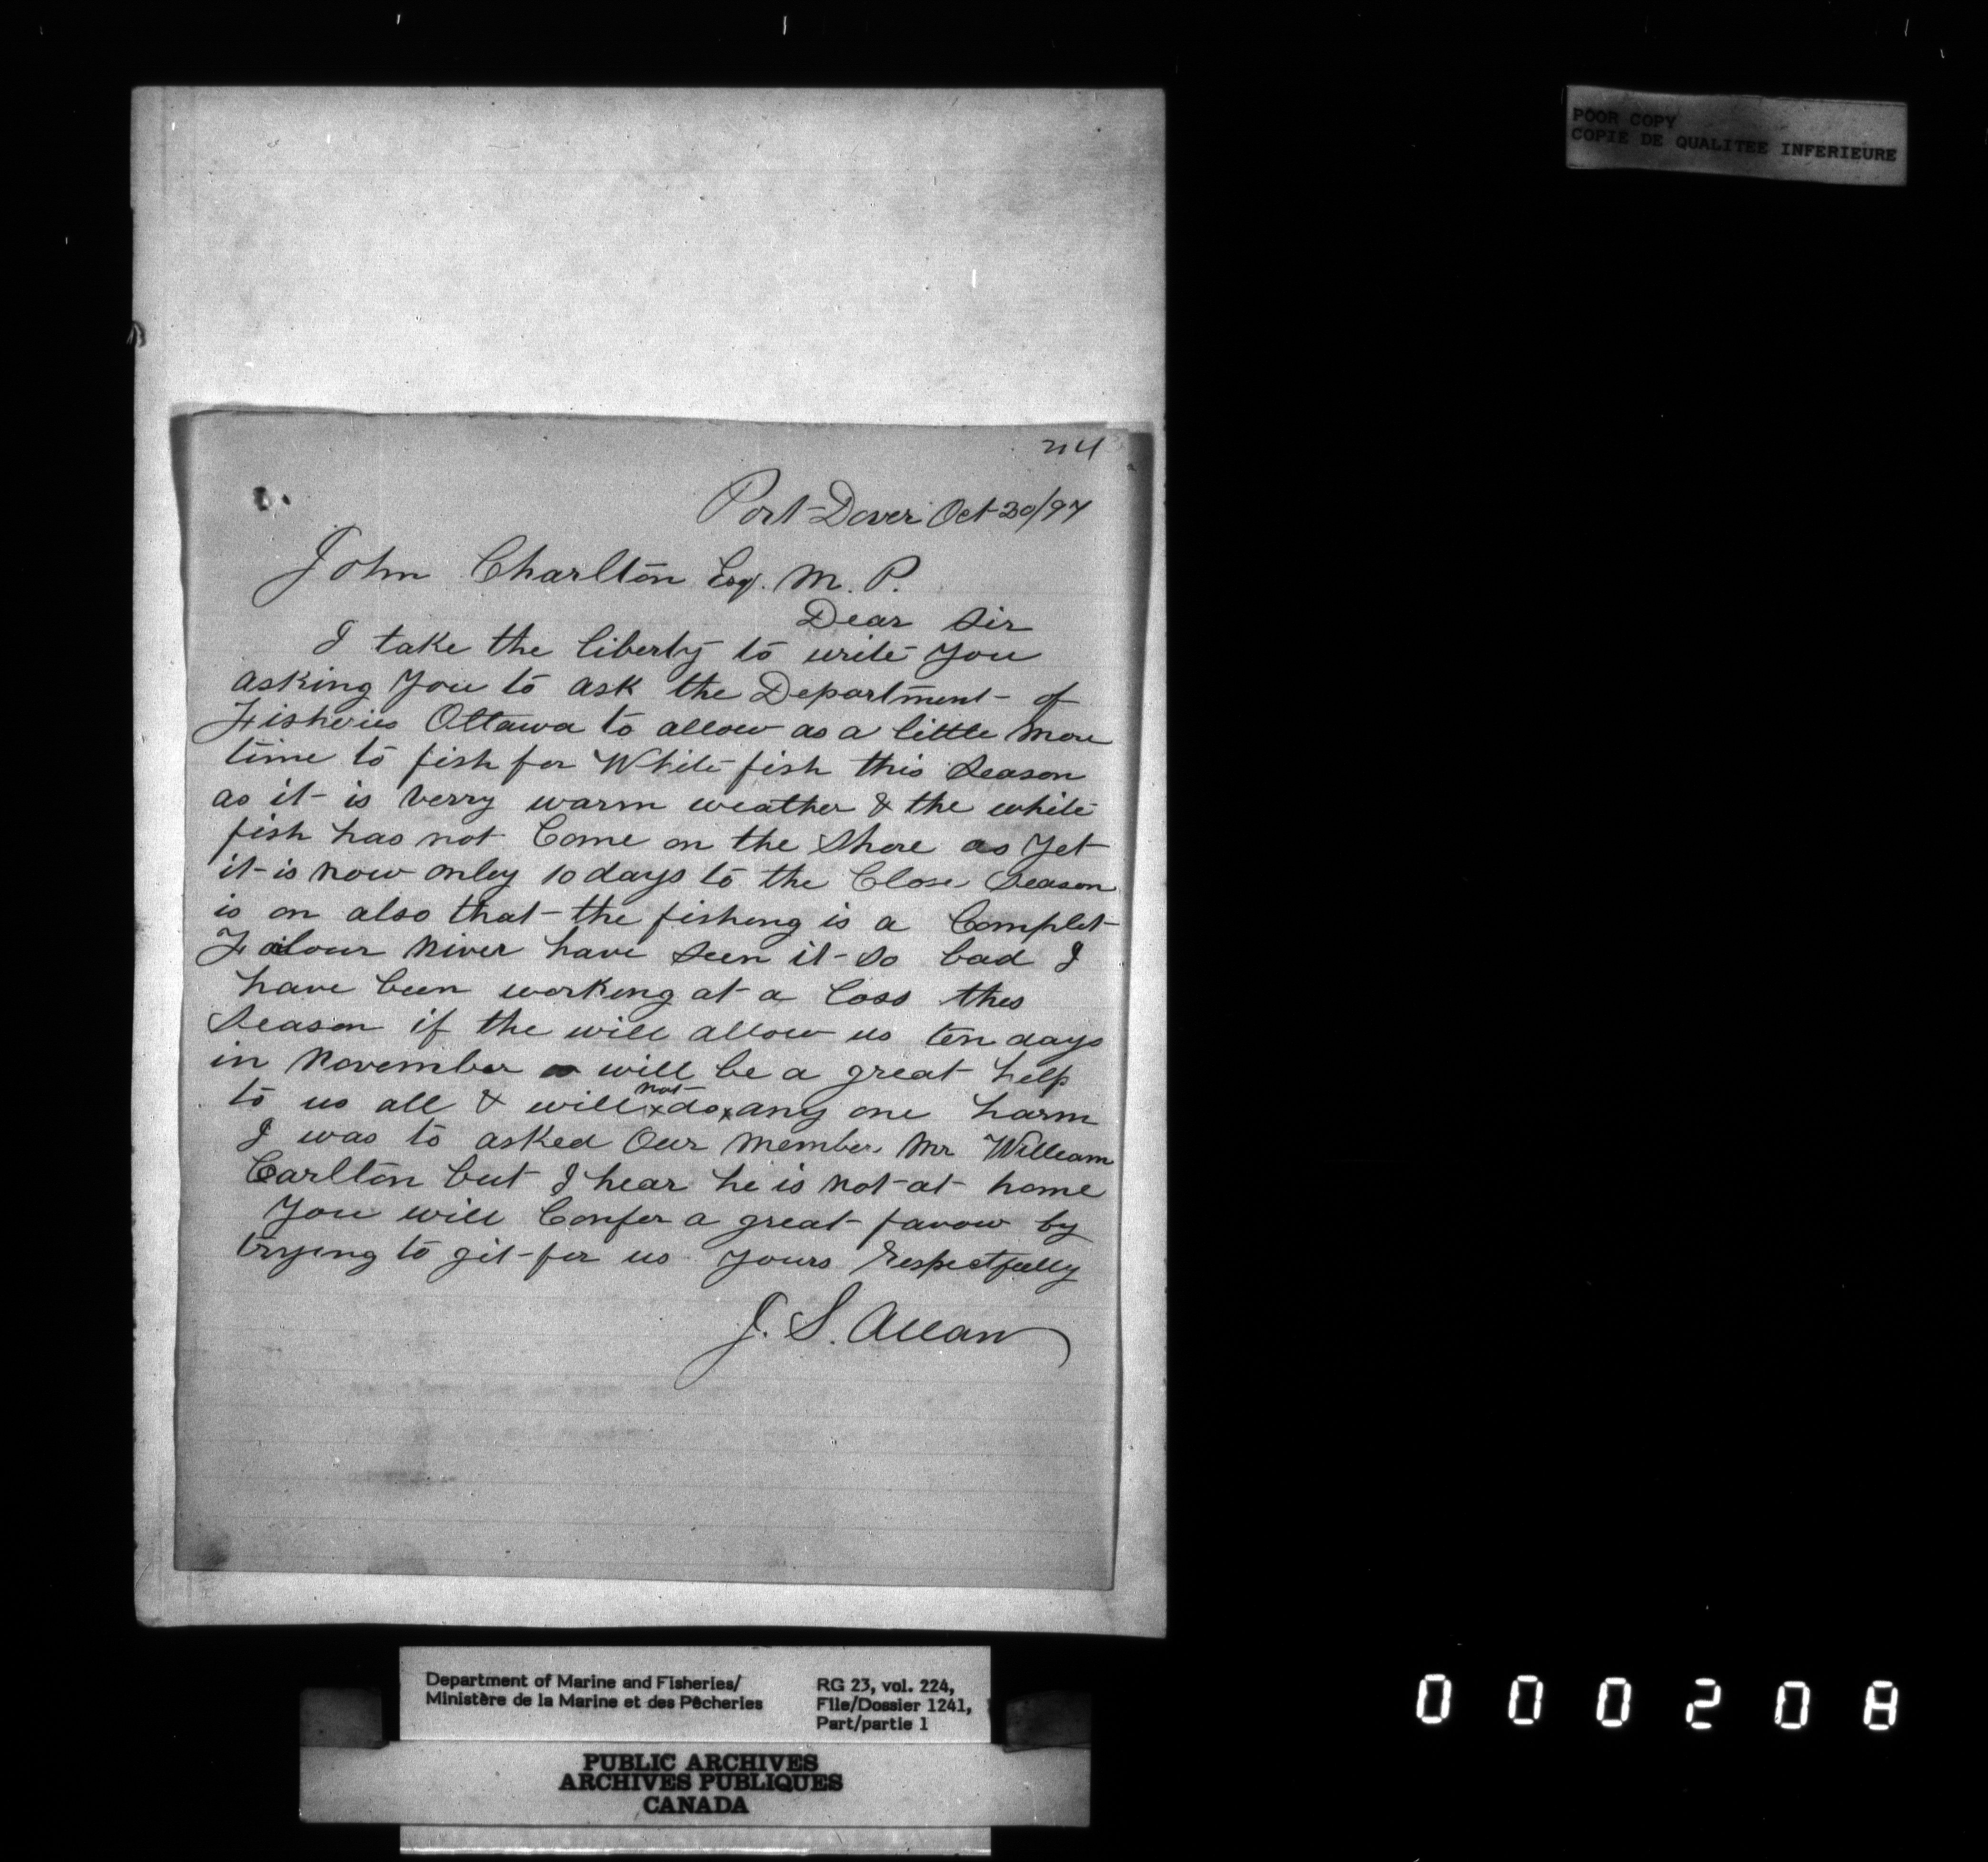 POOR COPY
COPIE DE QUALITEE INFERIEURE
214
Port-Dover Oct 20/97
John Charlton Esq. M. P.
Dear Sir
I take the liberty to write You
asking You to ask the Department of
Fisheries Ottawa to allow as a little more
time to fish for White fish this Season
as it is verry warm weather & the white
fish has not Come on the Shore as Yet
it is now onley 10 days to the Close Season
is on also that the fisheng is a Complet
Failour niver have seen it so bad I
have been workeng at a loss this
Season if the will allow us ten days
in November will be a great help
to us all & will not do any one harm
I was to asked Our member Mr William
Carlton but I hear he is not at home
You will Confer a great favour by
trying to git for us Yours Respectfully
J. S. Allan
Department of Marine and Fisheries/
Ministère de la Marine et des Pêcheries
RG 23, vol. 224,
File/Dossier 1241,
Part/partie 1
PUBLIC ARCHIVES
ARCHIVES PUBLIQUES
CANADA
000208